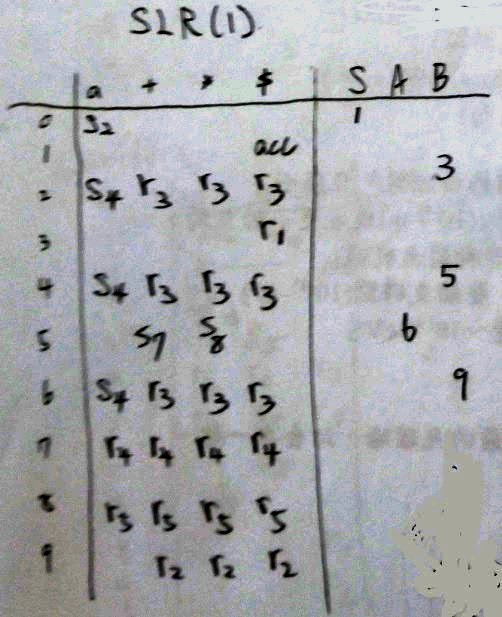 SLR(1)
a + * $ S A B
0 S2 1
1 acc
2 S4 r3 r3 r3 3
3 r1
4 S4 r3 r3 r3 5
5 S7 S8 6
6 S4 r3 r3 r3 9
7 r4 r4 r4 r4
8 r5 r5 r5 r5
9 r2 r2 r2